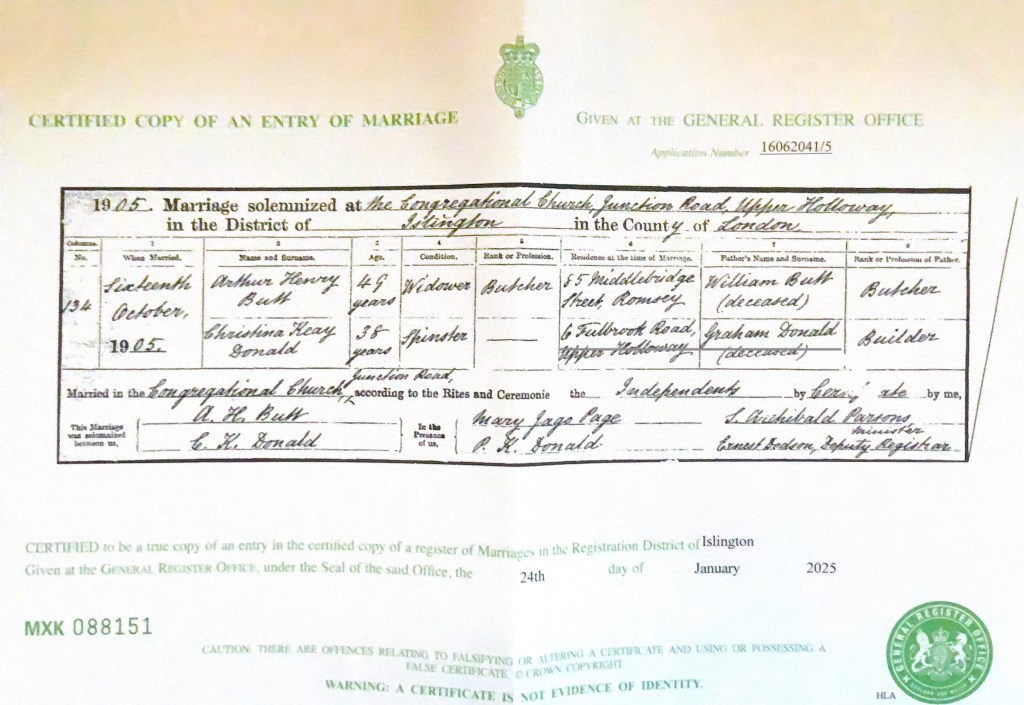 CERTIFIED COPY OF AN ENTRY OF MARRIAGE
GIVEN AT THE GENERAL REGISTER OFFICE
Application Number 16062041/5
1905. Marriage solemnized at the Congregational Church, Junction Road, Upper Holloway,
in the District of Islington in the County of London.
Columns. 1 2 3 4 5 6 7 8
No. When Married. Name and Surname. Age. Condition. Rank or Profession. Residence at the time of Marriage. Father's Name and Surname. Rank or Profession of Father.
134 Sixteenth October, 1905. Arthur Henry Butt 49 years Widower Butcher 85 Middlebridge Street, Romsey William Butt (deceased) Butcher
Christina Keay Donald 38 years Spinster 6 Fulbrook Road, Upper Holloway Graham Donald (deceased) Builder
Married in the Congregational Church, Junction Road, according to the Rites and Ceremonie the Independents by by me,
This Marriage was solemnized between us,
A. H. Butt
C. K. Donald
In the Presence of us,
Mary Jago Page
P. K. Donald
S. Archibald Parsons Minister
Ernest Dodson, Deputy Registrar
CERTIFIED to be a true copy of an entry in the certified copy of a register of Marriages in the Registration District of Islington
Given at the GENERAL REGISTER OFFICE, under the Seal of the said Office, the 24th day of January 2025
MXK 088151
CAUTION: THERE ARE OFFENCES RELATING TO FALSIFYING OR ALTERING A CERTIFICATE AND USING OR POSSESSING A
FALSE CERTIFICATE © CROWN COPYRIGHT
WARNING: A CERTIFICATE IS NOT EVIDENCE OF IDENTITY.
GENERAL REGISTER OFFICE
ENGLAND AND WALES
HLA